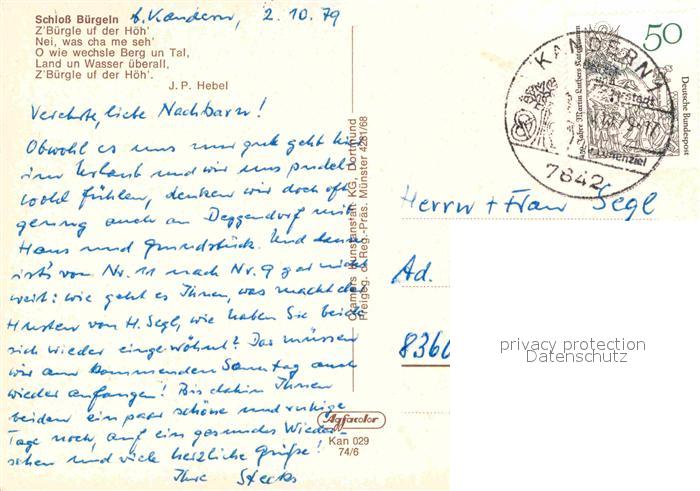 Schloß Bürgeln
Z'Bürgle uf der Höh'
Nei, was cha me seh'
O wie wechsle Berg un Tal,
Land un Wasser überall,
Z'Bürgle uf der Höh'.
J. P. Hebel
b. Kandern, 2.10.79
Verehrte, liebe Nachbarn!
Obwohl es uns nur gut geht hier
im Urlaub und wir uns pudel-
wohl fühlen, denken wir doch oft
genug auch an Deggendorf mit
Haus und Grundstück. Und dann
ist's von Nr. 11 nach Nr. 9 gar nicht
weit: wie geht es Ihnen, was macht der
Husten von H. Segl, wie haben Sie beide
sich wieder eingewöhnt? Das müssen
wir am kommenden Sonntag auch
wieder anfangen! Bis dahin Ihnen
beiden ein paar schöne und ruhige
Tage noch, auf ein gesundes Wieder-
sehen und viele herzliche Grüße!
Ihre Stecks
Cramers Kunstanstalt KG, Dortmund
Freigeg. d. Reg.-Präs. Münster 4281/68
Agfacolor
Kan 029
74/6
KANDERN 1
7842
50
Deutsche Bundespost
450 Jahre Martin Luthers Katechismus
Herrn + Frau Segl
Ad.
8360
privacy protection
Datenschutz